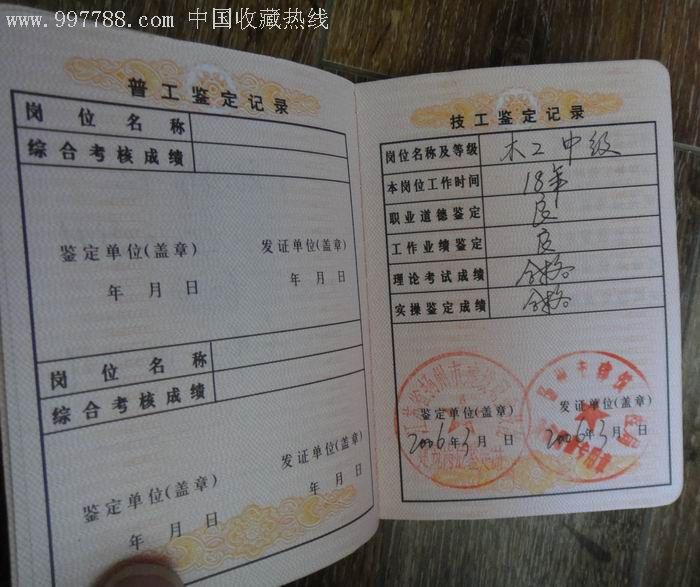 www.997788.com 中国收藏热线
普工鉴定记录
岗位名称
综合考核成绩
鉴定单位(盖章) 发证单位(盖章)
年 月 日 年 月 日
岗位名称
综合考核成绩
鉴定单位(盖章) 发证单位(盖章)
年 月 日 年 月 日
技工鉴定记录
岗位名称及等级 木工中级
本岗位工作时间 18年
职业道德鉴定 良
工作业绩鉴定 良
理论考试成绩 合格
实操鉴定成绩 合格
鉴定单位(盖章) 发证单位(盖章)
2006年3月 日 2006年3月 日